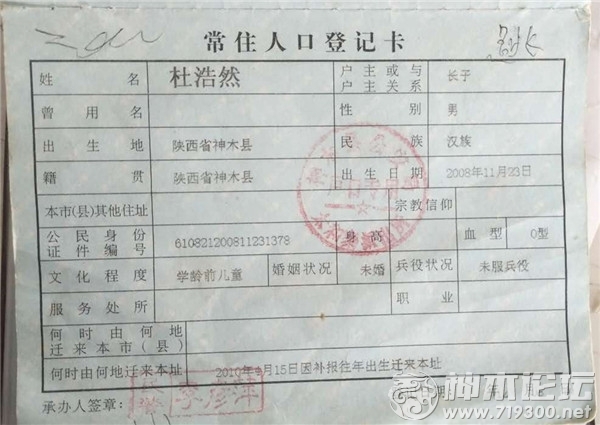 常住人口登记卡
姓名 杜浩然 户主或与户主关系 长子
曾用名 性别 男
出生地 陕西省神木县 民族 汉族
籍贯 陕西省神木县 出生日期 2008年11月23日
本市(县)其他住址 宗教信仰
公民身份证件编号 610821200811231378 身高 血型 O型
文化程度 学龄前儿童 婚姻状况 未婚 兵役状况 未服兵役
服务处所 职业
何时由何地迁来本市(县)
何时由何地迁来本址 2010年4月15日因补报往年出生迁来本址
承办人签章:
神木论坛
www.719300.net